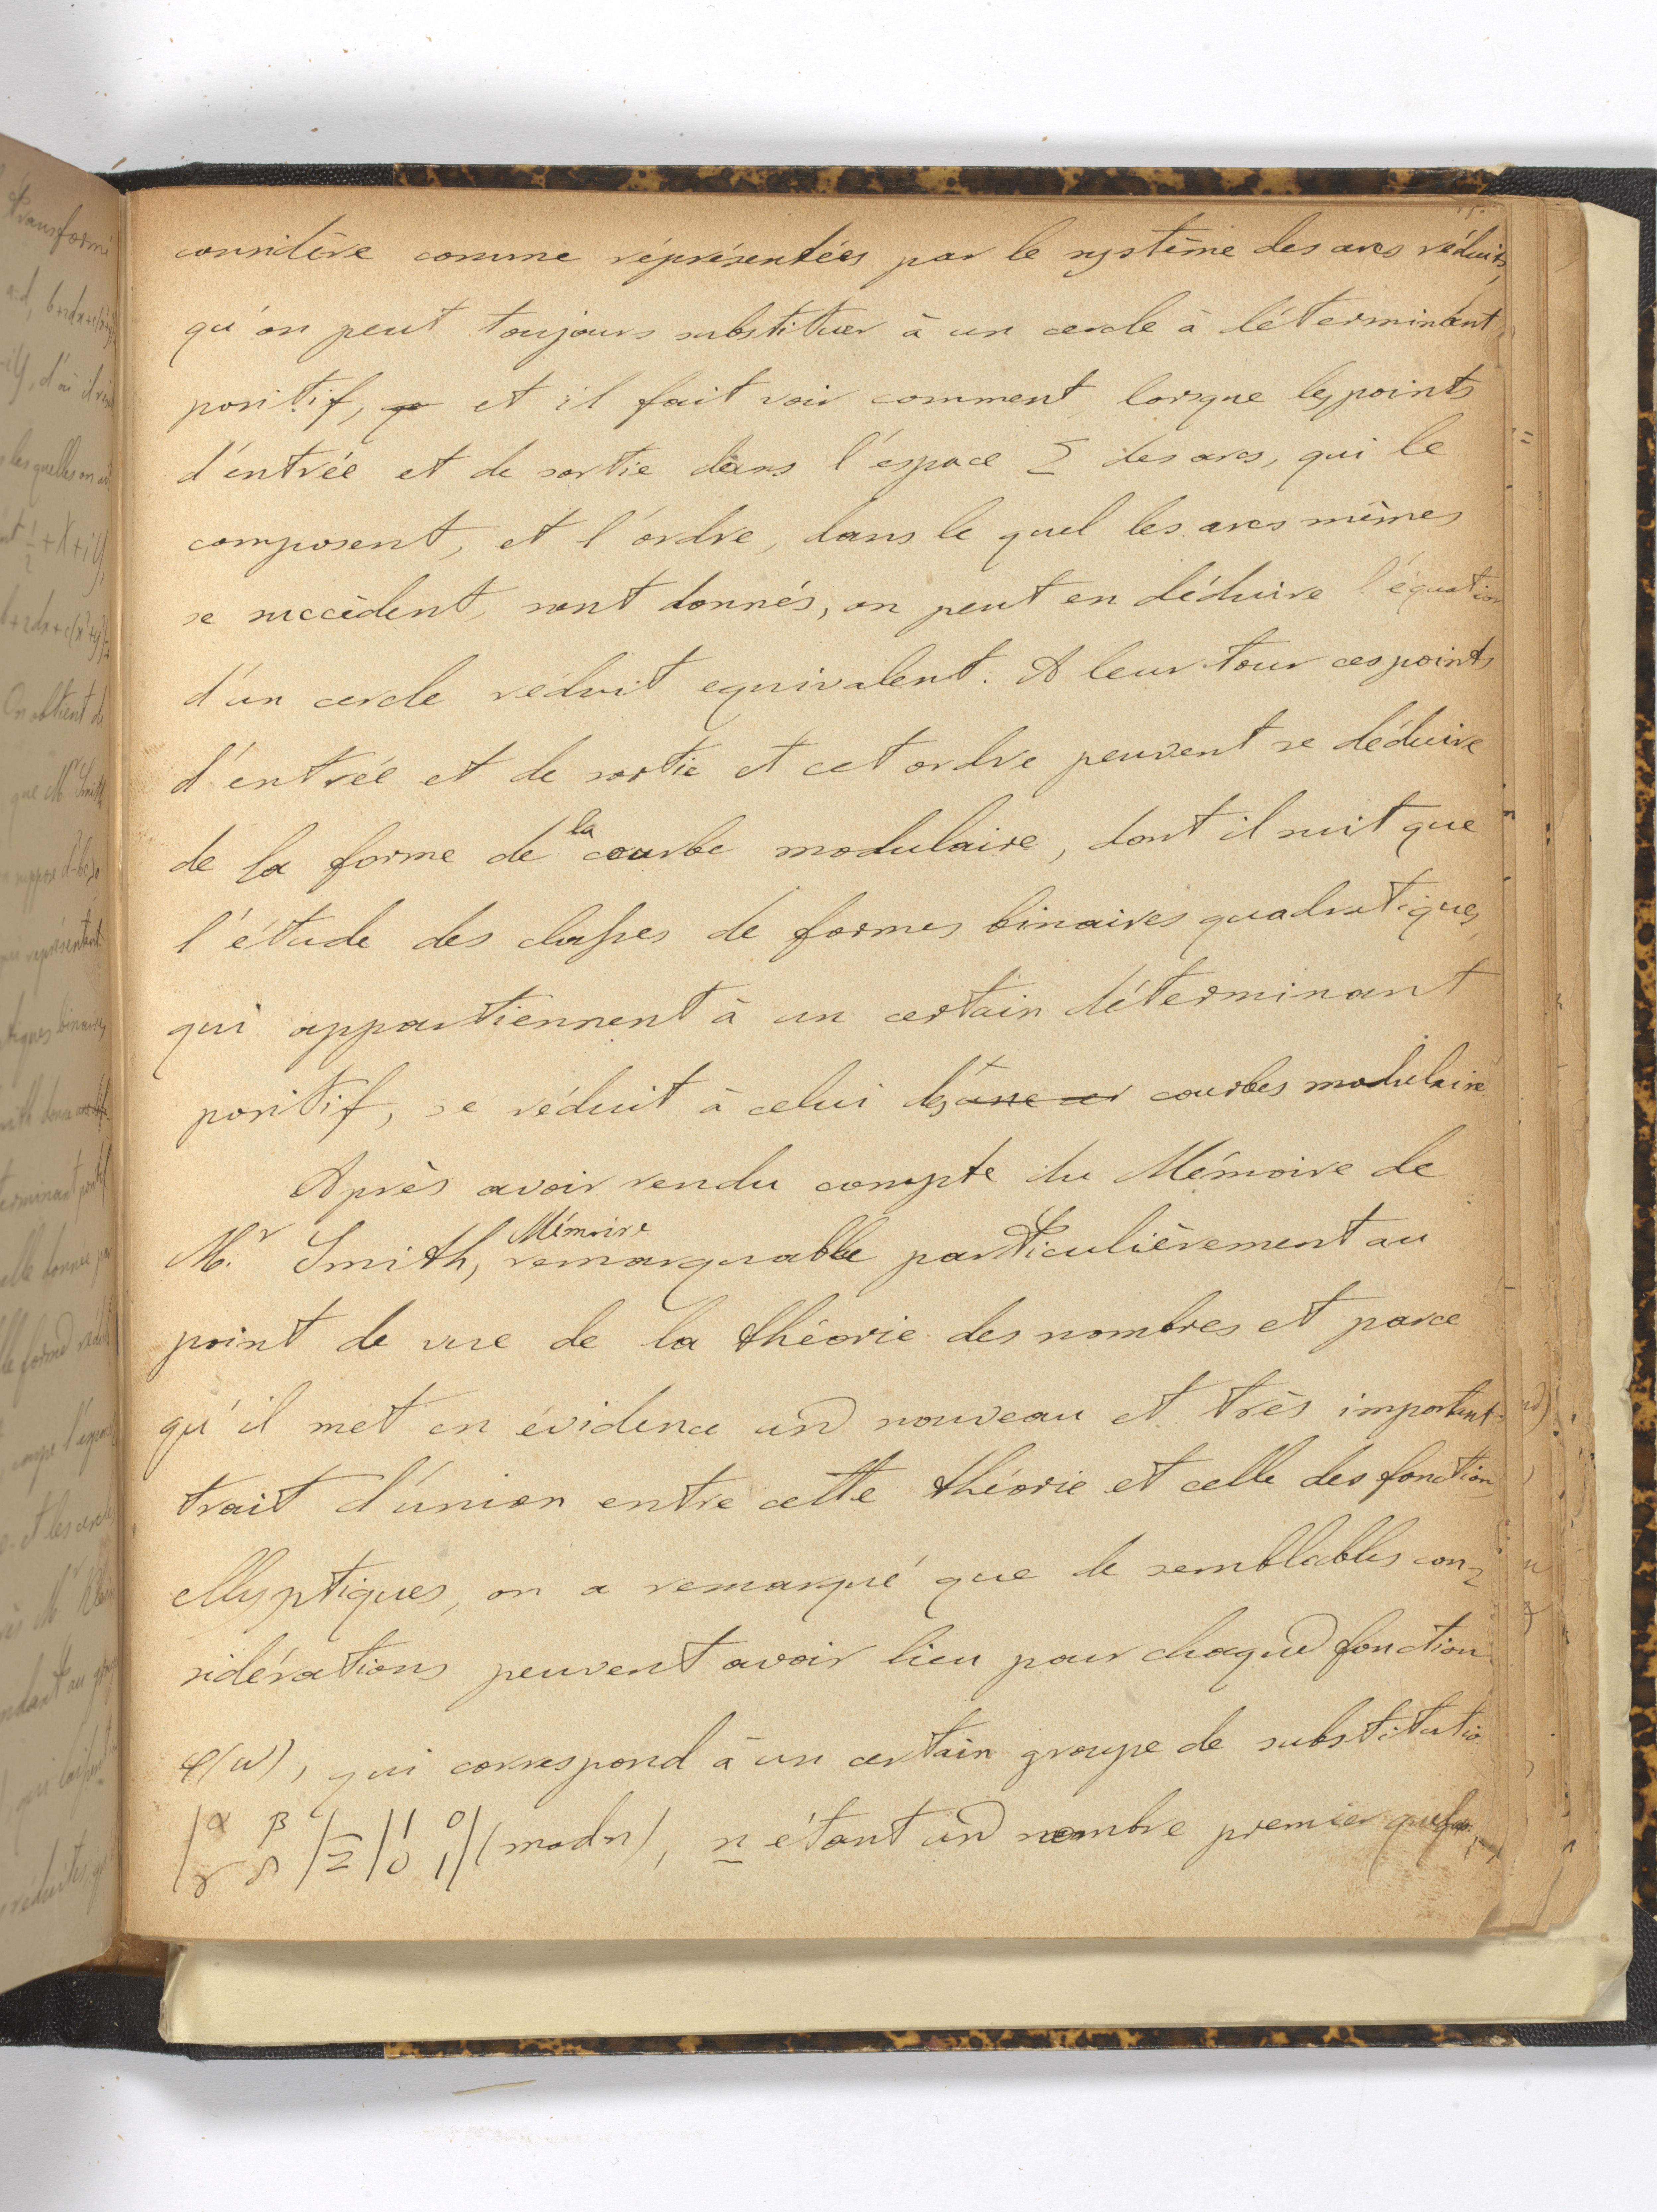 considère comme réprésentées par le système des arcs réduits,
qu'on peut toujours substituer à un cercle à déterminant
positif, et il fait voir comment, lorsque les points
d'entrée et de sortie dans l'espace Σ des arcs, qui le
composent, et l'ordre, dans le quel les arcs mêmes
se succèdent, sont donnés, on peut en déduire l'équation
d'un cercle réduit equivalent. A leur tour ces points
d'entrée et de sortie et cet ordre peuvent se déduire
de la forme de la courbe modulaire, dont il suit que
l'étude des classes de formes binaires quadratiques,
qui appartiennent à un certain déterminant
positif, se réduit à celui des courbes modulaire
Après avoir rendu compte du Mémoire de
M.r Smith, Mémoire remarquable particulièrement au
point de vue de la théorie des nombres et parce
qu'il met en évidence un nouveau et très important
trait d'union entre cette théorie et celle des fonction
ellyptiques, on a remarqué que de semblables con=
sidérations peuvent avoir lieu pour chaque fonction
φ(ω), qui correspond à un certain groupe de substitutio
|α β / γ δ| ≡ |1 0 / 0 1| (mod n), n étant un nombre premier
Transformé